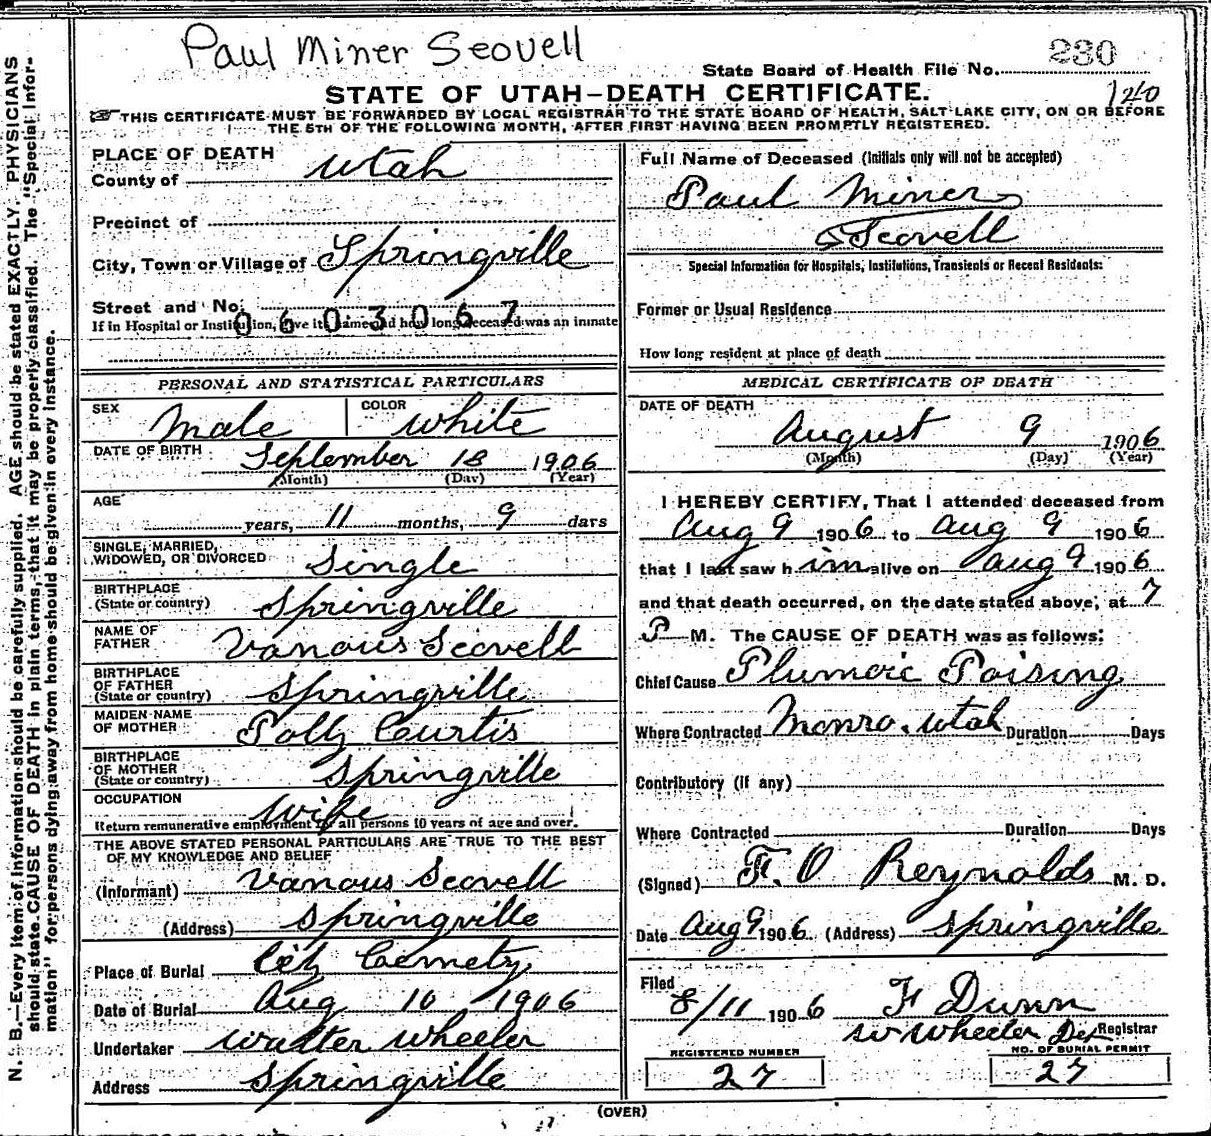 Paul Miner Scovell
230
State Board of Health File No.
STATE OF UTAH—DEATH CERTIFICATE.
120
THIS CERTIFICATE MUST BE FORWARDED BY LOCAL REGISTRAR TO THE STATE BOARD OF HEALTH, SALT LAKE CITY, ON OR BEFORE
THE 5TH OF THE FOLLOWING MONTH, AFTER FIRST HAVING BEEN PROMPTLY REGISTERED.
N. B.—Every item of information should be carefully supplied. AGE should be stated EXACTLY. PHYSICIANS
should state CAUSE OF DEATH in plain terms, that it may be properly classified. The "Special Infor-
mation" for persons dying away from home should be given in every instance.
PLACE OF DEATH
County of Utah
Precinct of
City, Town or Village of Springville
Street and No.
0603067
If in Hospital or Institution, give its name and how long deceased was an inmate
PERSONAL AND STATISTICAL PARTICULARS
SEX Male COLOR White
DATE OF BIRTH September 18 1906
(Month) (Day) (Year)
AGE
years, 11 months, 9 days
SINGLE, MARRIED,
WIDOWED, OR DIVORCED Single
BIRTHPLACE
(State or country) Springville
NAME OF
FATHER Vanous Scovell
BIRTHPLACE
OF FATHER
(State or country) Springville
MAIDEN NAME
OF MOTHER Polly Curtis
BIRTHPLACE
OF MOTHER
(State or country) Springville
OCCUPATION Wife
Return remunerative employment for all persons 10 years of age and over.
THE ABOVE STATED PERSONAL PARTICULARS ARE TRUE TO THE BEST
OF MY KNOWLEDGE AND BELIEF
(Informant) Vanous Scovell
(Address) Springville
Place of Burial City Cemety
Date of Burial Aug 10 1906
Undertaker Walter Wheeler
Address Springville
Full Name of Deceased (Initials only will not be accepted)
Paul Miner
Scovell
Special Information for Hospitals, Institutions, Transients or Recent Residents:
Former or Usual Residence
How long resident at place of death
MEDICAL CERTIFICATE OF DEATH
DATE OF DEATH
August 9 1906
(Month) (Day) (Year)
I HEREBY CERTIFY, That I attended deceased from
Aug 9 1906 to Aug 9 1906
that I last saw him alive on Aug 9 1906
and that death occurred, on the date stated above, at 7
P M. The CAUSE OF DEATH was as follows:
Chief Cause Plumoic Poising
Where Contracted Monro. Utah Duration Days
Contributory (if any)
Where Contracted Duration Days
(Signed) F. O Reynolds M. D.
Date Aug 9 1906 (Address) Springville
Filed
8/11 1906 F Dunn
W Wheeler Dep Registrar
REGISTERED NUMBER
27
NO. OF BURIAL PERMIT
27
(OVER)